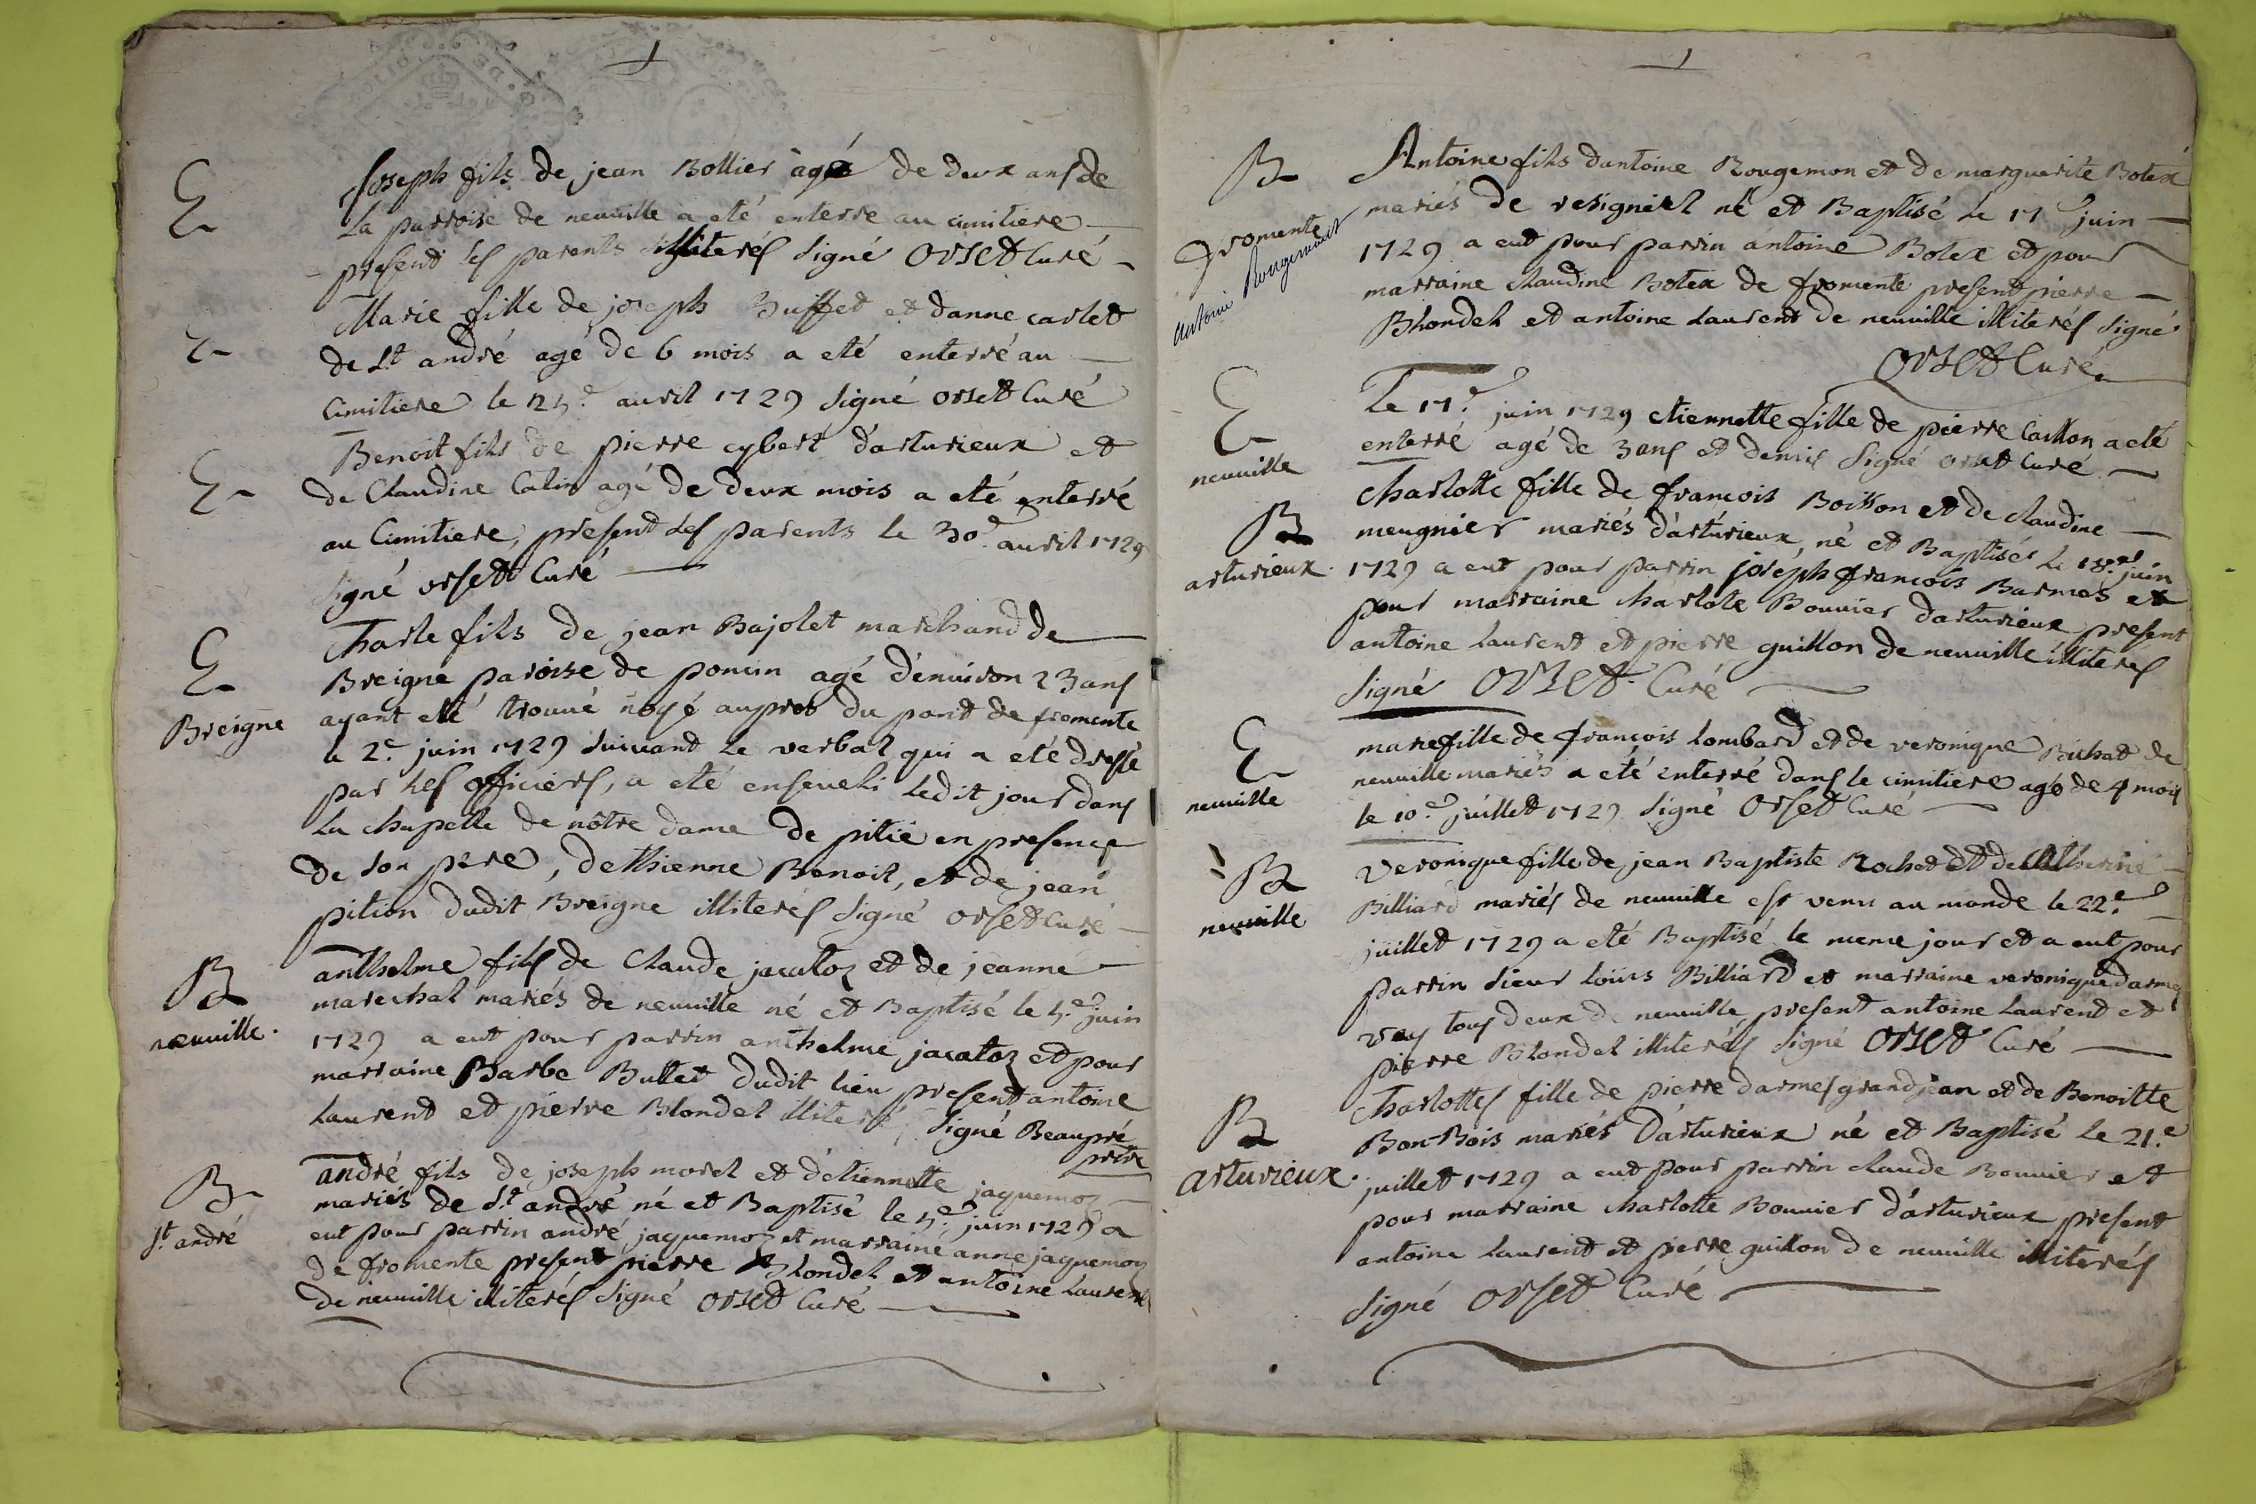 E
Joseph fils de jean Bollier agé de deux ans de
La parroise de neuuille a eté enterre au cimitiere
present les parents illiterés signé orset Curé
E
Marie fille de joseph Buffet et danne carlet
de St andré agé de 6 mois a eté enterré au
Cimitiere le auril 1729 signé orset Curé
E
Benoit fils de pierre cybert darturieux et
de Claudine Catin agé de deux mois a eté enterré
au Cimitiere, present les parents le 30e auril 1729
signé orset Curé
E
Breigne
Charle fils de jean Bajolet marchand de
Breigne paroisse de poncin agé denuiron 23 ans
ayant eté trouué noyé aupres du port de fromente
le 2e juin 1729 suiuant le verbal qui a eté dressé
par les officiers, a eté enseueli ledit jour dans
La chapelle de nôtre dame de pitié en presence
de son pere, dethienne Benoit, et de jean
pition dudit Breigne illiterés signé orset Curé
B
neuuille.
anthelme fils de Claude jacatoz et de jeanne
marechal mariés de neuuille né et Baptisé le 5e juin
1729 a eut pour parrin anthelme jacatoz et pour
marraine Barbe Bullet dudit lieu present antoine
Laurent et pierre Blondel illiteré signé Beaupré
pretre
B
St andré
andré fils de joseph morel et détiennette jaquemoz
mariés de St andré né et Baptisé le 5e juin 1729 a
eut pour parrin andré jaquemoz et marraine anne jaquemoz
de fromente present pierre Blondel et antoine Laurent
de neuuille illiterés signé orset Curé
B
fromente
antoine Rougemont
Antoine fils dantoine Rougemon et de marguerite Botex
mariés de resigniel né et Baptisé le 17e juin
1729 a eut pour parrin antoine Botex et pour
marraine claudine Botex de fromente present pierre
Blondel et antoine Laurent de neuuille illiterés signé
orset Curé
E
neuuille
Le 17e juin 1729 etiennette fille de pierre Caillon a eté
enterré agé de 3 ans et demis signé orset Curé
B
arturieux.
charlotte fille de françois Boisson et de claudine
meugnier mariés darturieux, né et Baptisés le 18e juin
1729 a eut pour parrin joseph françois Barmes et
pour marraine charlote Bouuier darturieux present
antoine Laurent et pierre guillon de neuuille illiterés
signé orset Curé
E
neuuille
marie fille de françois Lombard et de veronique Bichat de
neuuille mariés a eté enterré dans le cimitiere agé de 4 mois
le 10e juillet 1729 signé orset Curé
B
neuuille
Veronique fille de jean Baptiste Rochet et de Catherine
Billiard mariés de neuuille est venu au monde le 22e
juillet 1729 a eté Baptisé le meme jour et a eut pour
parrin sieur Loüis Billiard et marraine veronique darme
tous deux de neuuille present antoine Laurent et
pierre Blondel illiterés signé orset Curé
B
arturieux.
Charlotte fille de pierre darmes grandjean et de Benoitte
Bon-Bois mariés Darturieux né et Baptisé le 21e
juillet 1729 a eut pour parrin claude Bouuier et
pour marraine charlotte Bouuier darturieux present
antoine Laurent et pierre guillon de neuuille illiterés
signé orset Curé